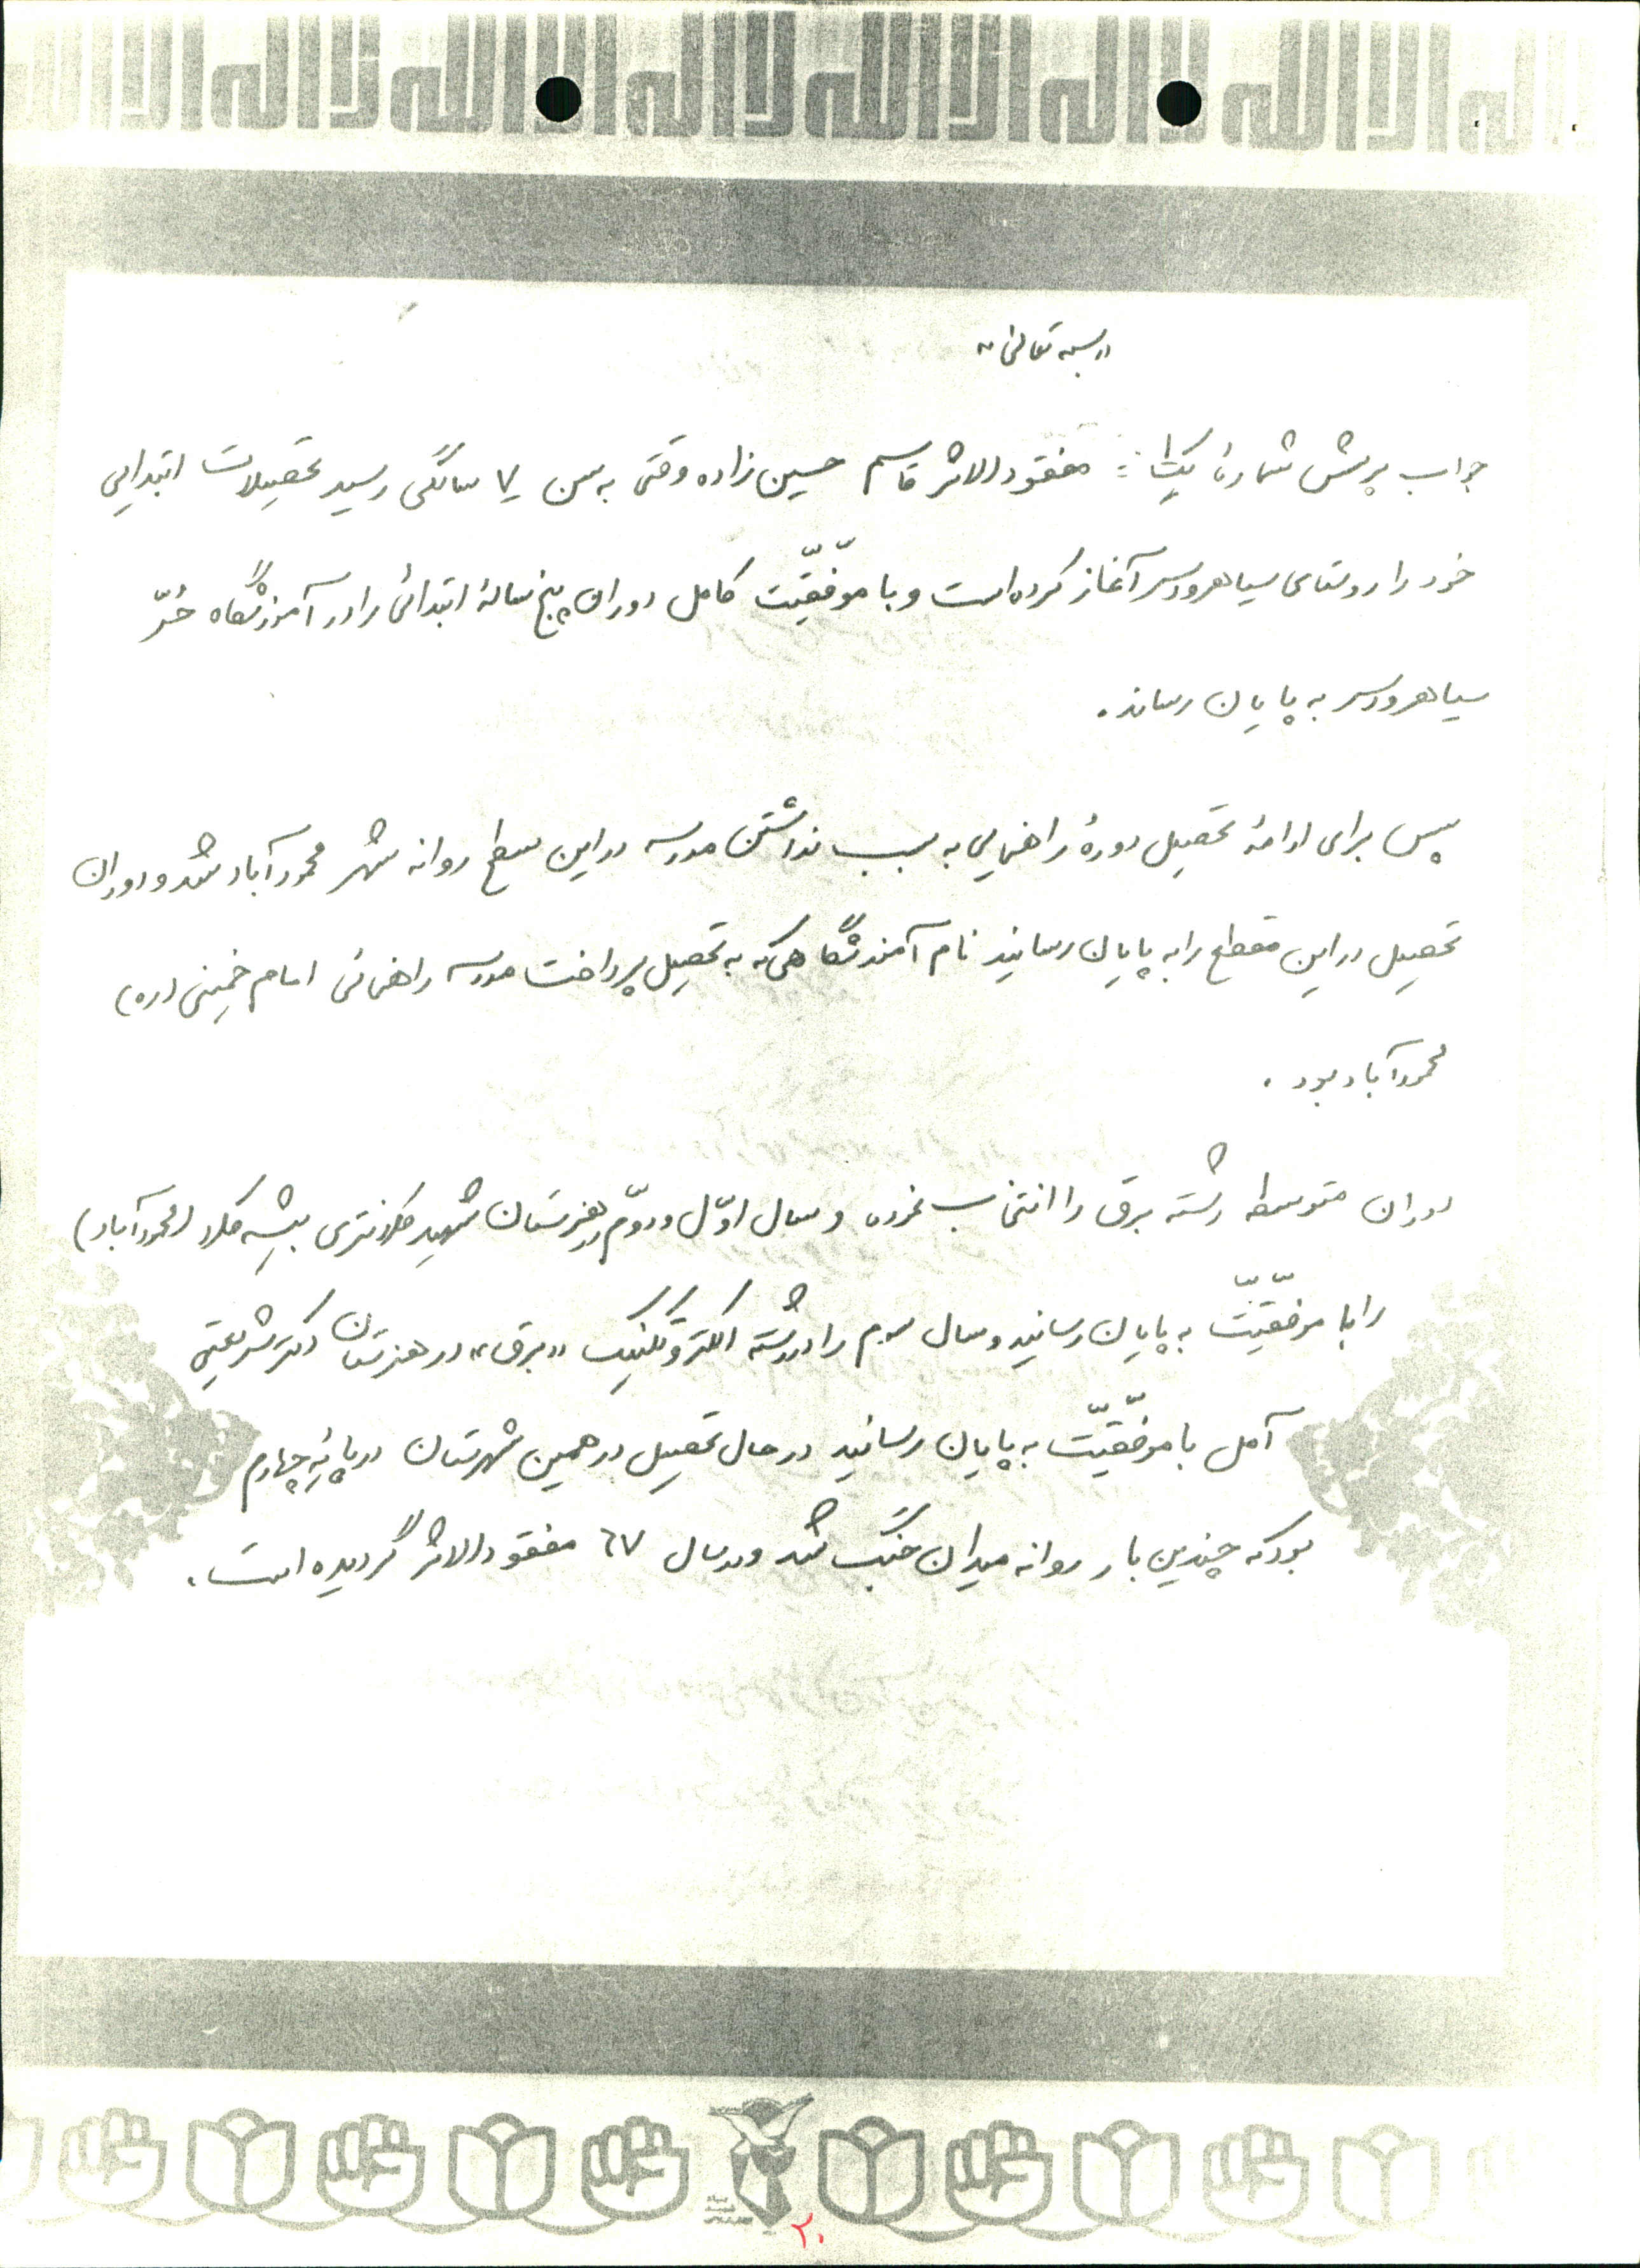 لااله الاالله لااله الاالله لااله الاالله
«بسمه تعالی»
جواب پرسش شمارهٔ یک: مفقودالاثر قاسم حسین زاده وقتی به سن ۷ سالگی رسید تحصیلات ابتدایی
خود را روستای سیاهرودسر آغاز کرده است و با موفّقیّت کامل دوران پنج سالهٔ ابتدائی را در آموزشگاه حُرّ
سیاهرودسر به پایان رساند.
پس برای ادامهٔ تحصیل دورهٔ راهنمایی به سبب نداشتن مدرسه در این سطح روانه شهر محمودآباد شد و دوران
تحصیل در این مقطع را به پایان رسانید نام آموزشگاهی که به تحصیل پرداخت مدرسه راهنمائی امام خمینی (ره)
محمودآباد بود.
دوران متوسطه رشته برق را انتخاب نموده و سال اوّل و دوّم در هنرستان شهید کلانتری بیشه کلا (محمودآباد)
را با موفّقیّت به پایان رسانید و سال سوم را در رشته الکتروتکنیک «برق» در هنرستان دکتر شریعتی
آمل با موفّقیّت به پایان رسانید در حال تحصیل در همین شهرستان در پایهٔ چهارم
بود که چندین بار روانه میدان جنگ شد و در سال ٦٧ مفقودالاثر گردیده است.
بنیاد
شهید
انقلاب اسلامی
۲۰